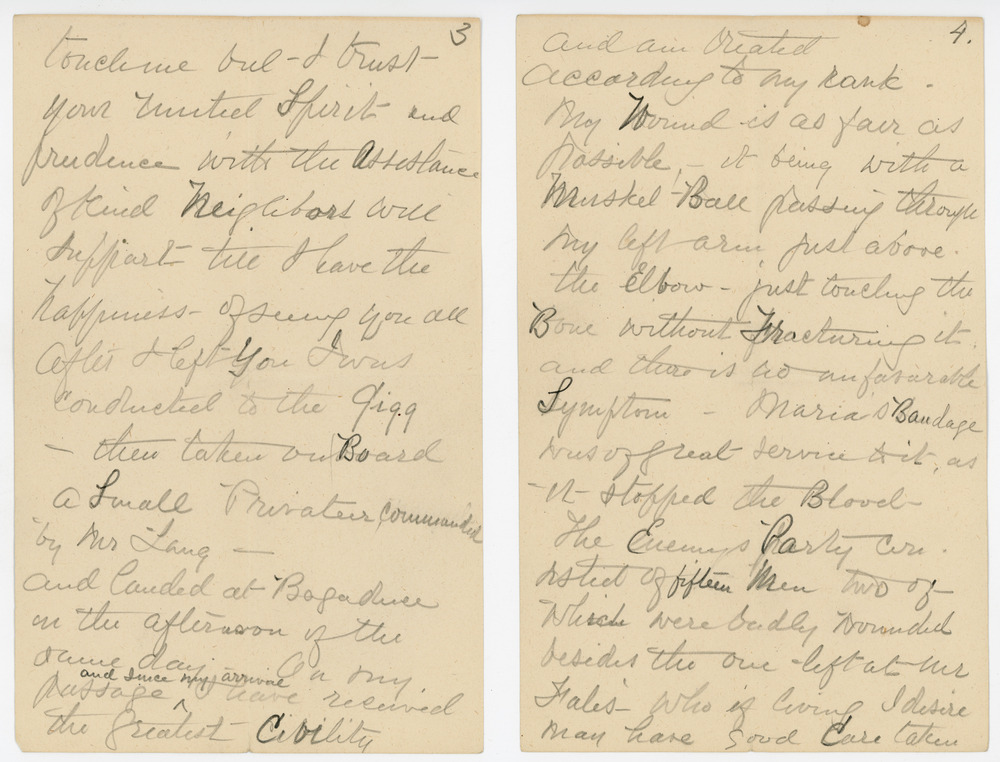 3
touch me but - I trust -
your united Spirit and
prudence with the Assistance
of kind Neighbors will
support till I have the
happiness - of seeing you all
After I left You I was
conducted to the Gigg
- then taken on Board
a Small Privateer commanded
by Mr Lang -
and landed at Bagaduce
on the afternoon of the
same day. On my
and since my arrival
passage ^ have received
the greatest Civility
4.
and am treated
according to my rank.
My Wound is as fair as
Possible, - it being with a
Musket - Ball passing through
my left arm, just above.
the Elbow - just touching the
Bone without Fracturing it.
and there is no unfavorable
Symptom - Maria's Bandage
was of great service to it, as
- it - stopped the Blood -
The Enemys Party con.
sisted of fifteen Men two of
Which were badly Wounded
besides the one - left at Mr
Fales - who if living I desire
may have good Care taken